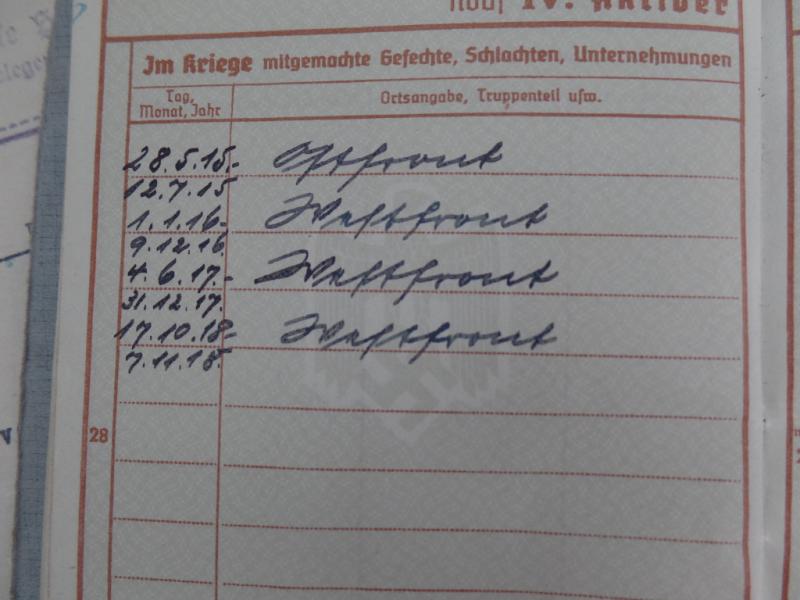 Noch IV. Aktiver
Im Kriege mitgemachte Gefechte, Schlachten, Unternehmungen
Tag, Monat, Jahr
Ortsangabe, Truppenteil usw.
28.5.15.- Ostfront
12.7.15
1.1.16.- Westfront
9.12.16.
4.6.17.- Westfront
31.12.17.
17.10.18- Westfront
7.11.18.
28